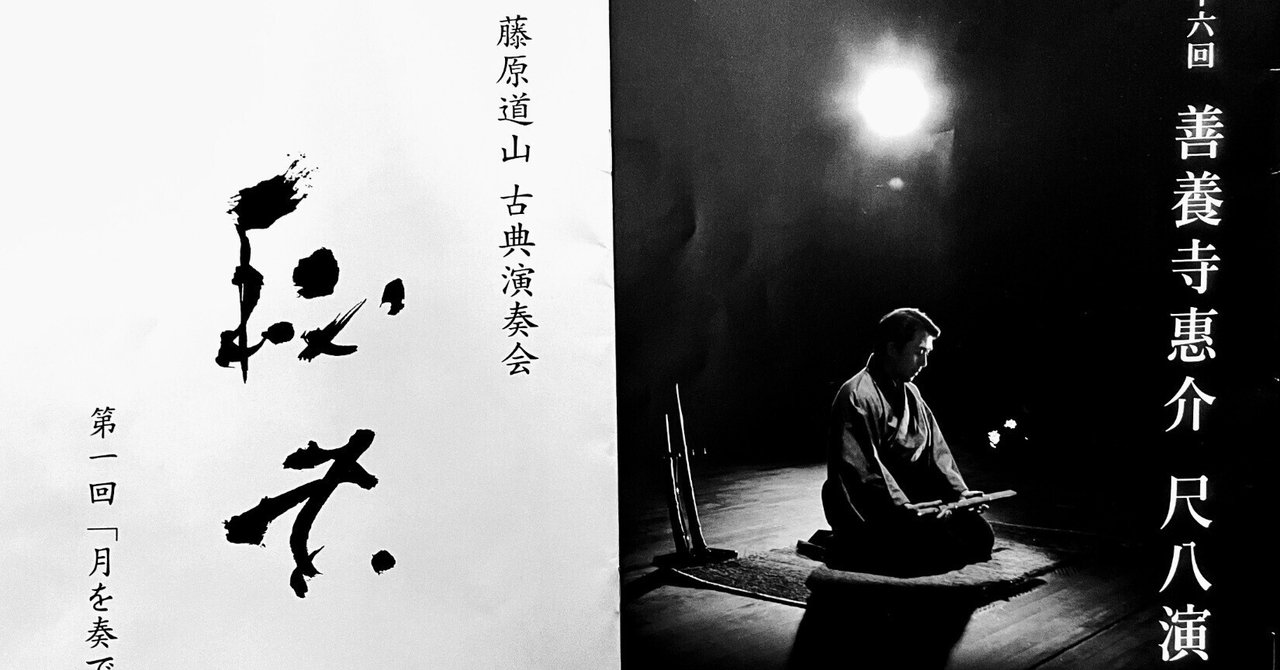 六回 善養寺惠介 尺八演
藤原道山 古典演奏会
第一回「月を奏で